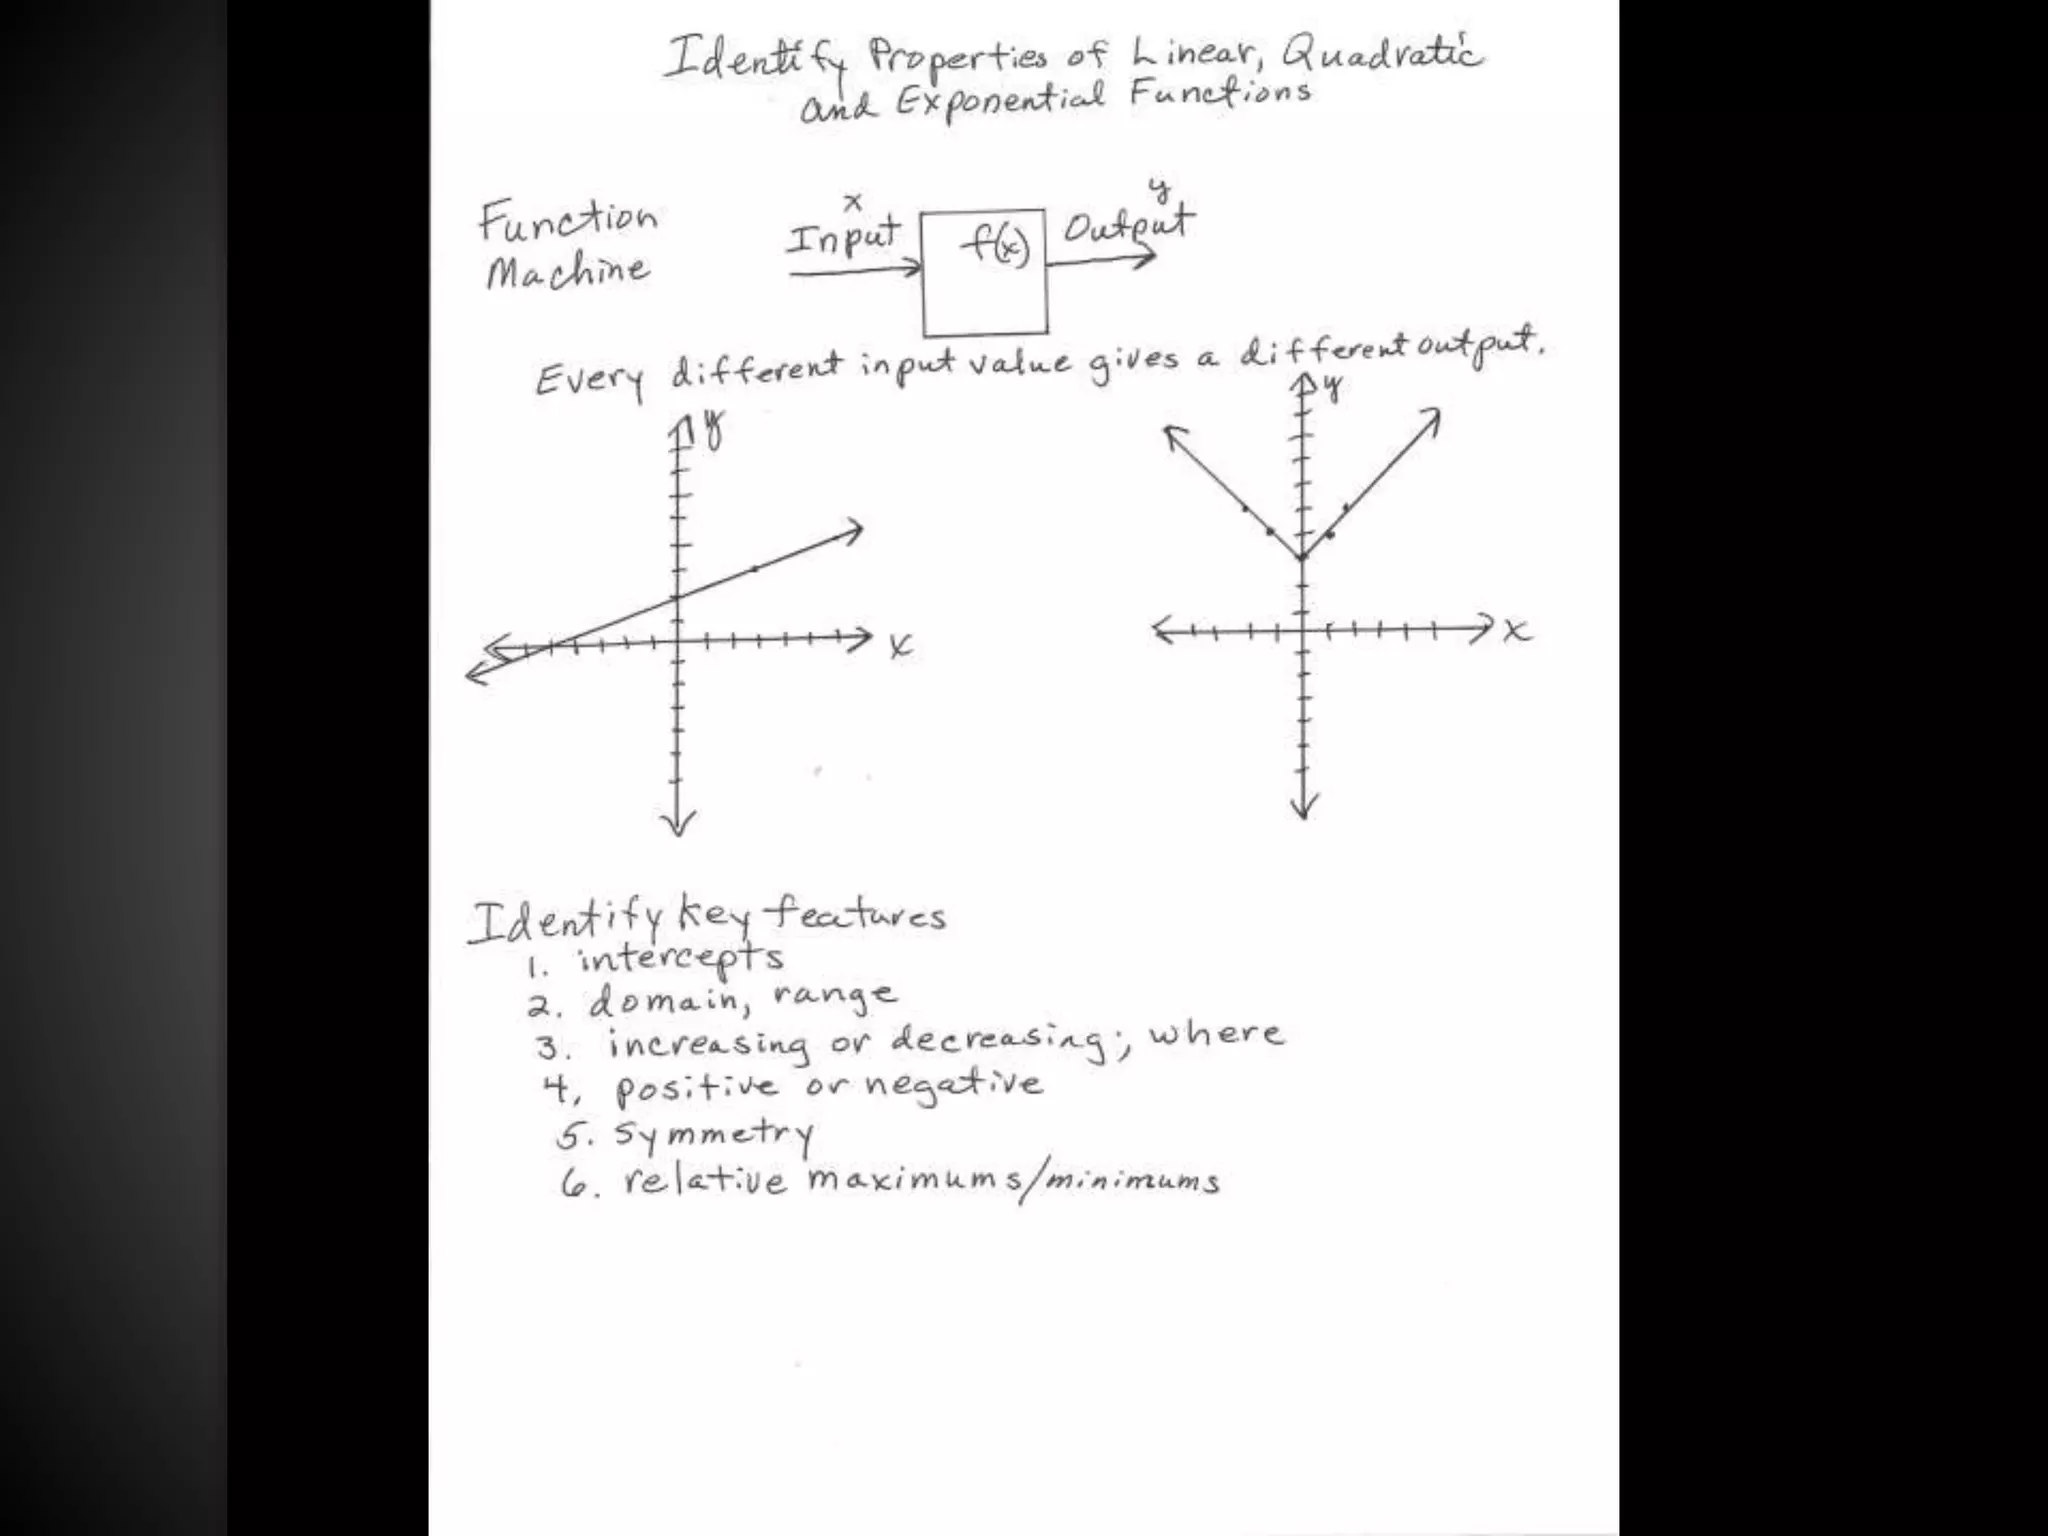 Identify Properties of Linear, Quadratic
and Exponential Functions
Function
Machine
x
Input
f(x)
y
Output
Every different input value gives a different output.
y
x
y
x
Identify key features
1. intercepts
2. domain, range
3. increasing or decreasing; where
4. positive or negative
5. symmetry
6. relative maximums/minimums